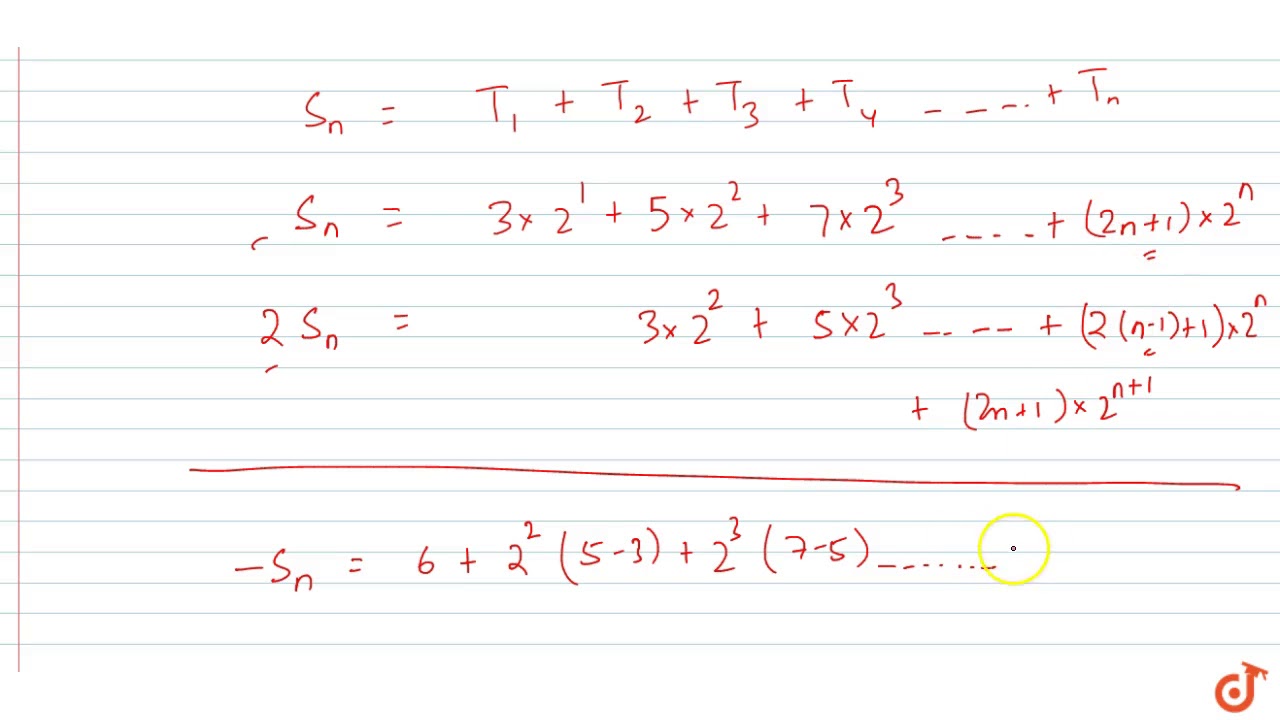 Sₙ = T₁ + T₂ + T₃ + T₄ ----- + Tₙ
Sₙ = 3×2¹ + 5×2² + 7×2³ ----- + (2n+1)×2ⁿ
2Sₙ = 3×2² + 5×2³ ---- + (2(n-1)+1)×2ⁿ
+ (2n+1)×2ⁿ⁺¹
-Sₙ = 6 + 2²(5-3) + 2³(7-5) -------